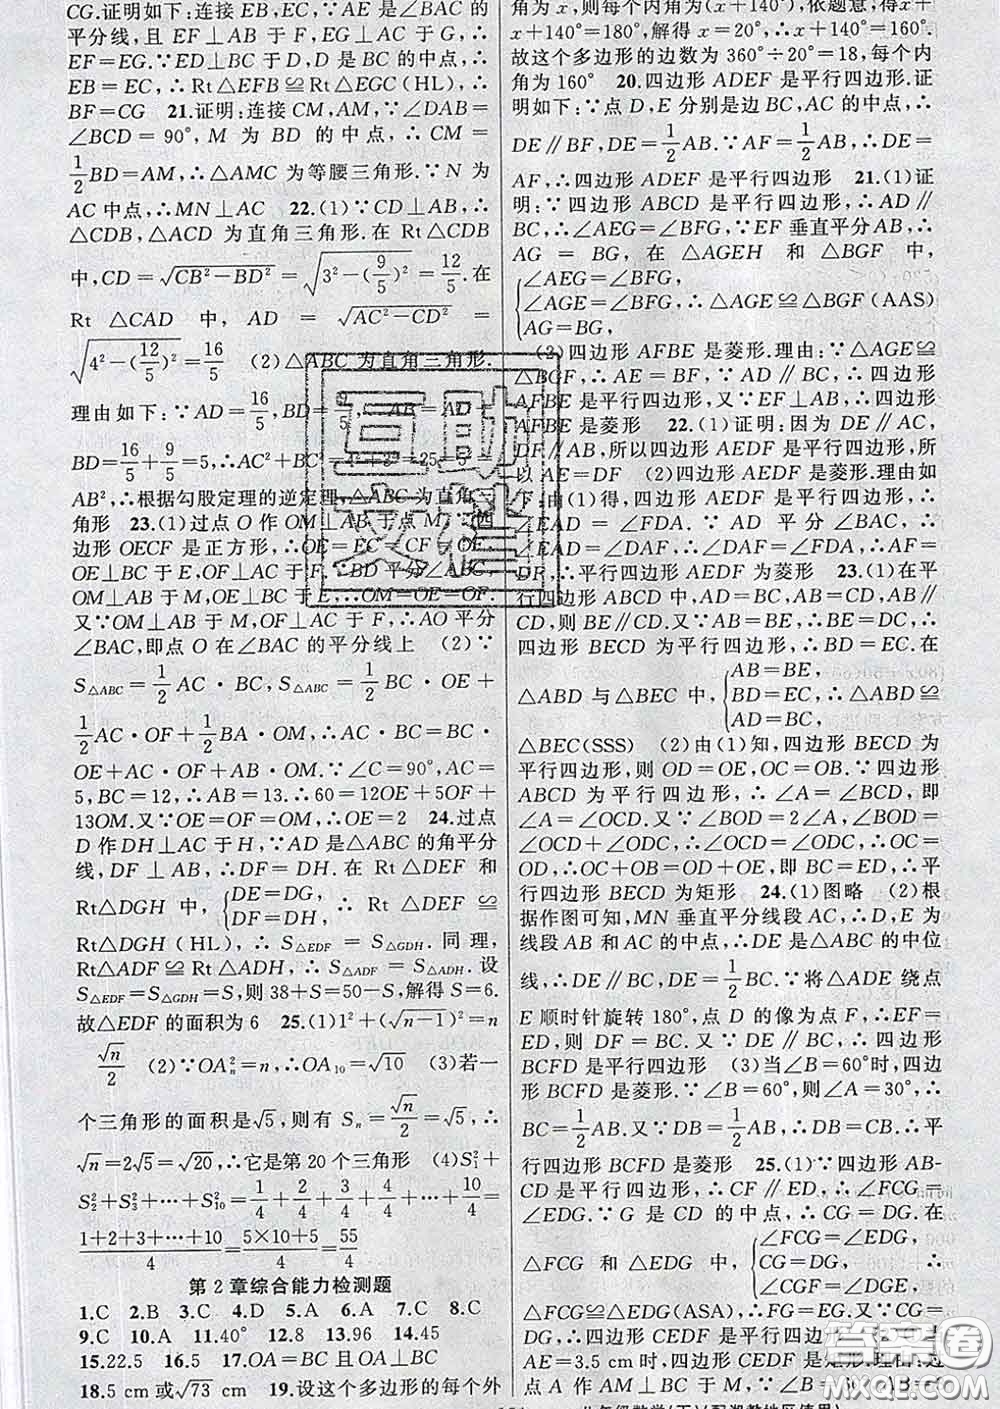 CG.证明如下:连接 EB,EC,∵AE 是∠BAC 的
平分线,且 EF⊥AB 于 F,EG⊥AC 于 G,∴
EF=EG.∵ED⊥BC 于 D,D 是 BC 的中点,∴
EB=EC,∴Rt△EFB≌Rt△EGC(HL),∴
BF=CG 21.证明:连接 CM,AM,∵∠DAB=
∠BCD=90°,M 为 BD 的中点,∴CM=
1/2BD=AM,∴△AMC 为等腰三角形.∵N 为
AC 中点,∴MN⊥AC 22.(1)∵CD⊥AB,∴
△CDB,△ACD 为直角三角形.在 Rt△CDB
中,CD=√(CB²-BD²)=√(3²-(9/5)²)=12/5.在
Rt△CAD 中,AD=√(AC²-CD²)=
√(4²-(12/5)²)=16/5 (2)△ABC 为直角三角形.
理由如下:∵AD=16/5,BD=9/5,∴AB=AD+
BD=16/5+9/5=5,∴AC²+BC²=4²+3²=25=5²=
AB²,∴根据勾股定理的逆定理,△ABC 为直角三
角形 23.(1)过点 O 作 OM⊥AB 于点 M,∵四
边形 OECF 是正方形,∴OE=EC=CF=OF,
OE⊥BC 于 E,OF⊥AC 于 F,∵BD 平分∠ABC,
OM⊥AB 于 M,OE⊥BC 于 E,∴OM=OE=OF.
又∵OM⊥AB 于 M,OF⊥AC 于 F,∴AO 平分
∠BAC,即点 O 在∠BAC 的平分线上 (2)∵
S△ABC=1/2AC·BC,S△ABC=1/2BC·OE+
1/2AC·OF+1/2BA·OM,∴AC·BC=BC·
OE+AC·OF+AB·OM.∵∠C=90°,AC=
5,BC=12,∴AB=13.∴60=12OE+5OF+
13OM.又∵OE=OF=OM,∴OE=2 24.过点
D 作 DH⊥AC 于 H,∵AD 是△ABC 的角平分
线,DF⊥AB,∴DF=DH.在 Rt△DEF 和
Rt△DGH 中,{DE=DG,DF=DH,∴Rt△DEF≌
Rt△DGH(HL),∴S△EDF=S△GDH.同理,
Rt△ADF≌Rt△ADH,∴S△ADF=S△ADH.设
S△EDF=S△GDH=S,则 38+S=50-S,解得 S=6.
故△EDF 的面积为 6 25.(1)1²+(√(n-1))²=n
√n/2 (2)∵OAₙ²=n,∴OA₁₀=√10 (3)若一
个三角形的面积是√5,则有 Sₙ=√n/2=√5,∴
√n=2√5=√20,∴它是第 20 个三角形 (4)S₁²+
S₂²+S₃²+…+S₁₀²=1/4+2/4+3/4+4/4+…+10/4=
(1+2+3+…+10)/4=(5×10+5)/4=55/4
第 2 章综合能力检测题
1.C 2.B 3.C 4.D 5.A 6.A 7.C 8.C
9.C 10.A 11.40° 12.8 13.96 14.45
15.22.5 16.5 17.OA=BC 且 OA⊥BC
18.5 cm 或√73 cm 19.设这个多边形的每个外
角为 x,则每个内角为(x+140°),依题意,得 x+
x+140°=180°,解得 x=20°,∴x+140°=160°.
故这个多边形的边数为 360°÷20°=18,每个内
角为 160° 20.四边形 ADEF 是平行四边形.证
明如下:∵点 D,E 分别是边 BC,AC 的中点,∴
DE∥BF,DE=1/2AB.∵AF=1/2AB,∴DE=
AF,∴四边形 ADEF 是平行四边形 21.(1)证
明:∵四边形 ABCD 是平行四边形,∴AD∥
BC,∴∠AEG=∠BFG,∵EF 垂直平分 AB,∴
AG=BG,在△AGEH 和△BGF 中,
{∠AEG=∠BFG,
∠AGE=∠BFG,∴△AGE≌△BGF(AAS)
AG=BG,
(2)四边形 AFBE 是菱形.理由:∵△AGE≌
△BGF,∴AE=BF,∵AD∥BC,∴四边形
AFBE 是平行四边形,又∵EF⊥AB,∴四边形
AFBE 是菱形 22.(1)证明:因为 DE∥AC,
DF∥AB,所以四边形 AEDF 是平行四边形,所
以 AE=DF (2)四边形 AEDF 是菱形.理由如
下:由(1)得,四边形 AEDF 是平行四边形,∴
∠EAD=∠FDA.∵AD 平分∠BAC,∴
∠EAD=∠DAF,∴∠DAF=∠FDA,∴AF=
DF,∴平行四边形 AEDF 为菱形 23.(1)在平
行四边形 ABCD 中,AD=BC,AB=CD,AB∥
CD,则 BE∥CD.又∵AB=BE,∴BE=DC,∴
四边形 BECD 为平行四边形,∴BD=EC.在
△ABD 与△BEC 中,{AB=BE,BD=EC,AD=BC,∴△ABD≌
△BEC(SSS) (2)由(1)知,四边形 BECD 为
平行四边形,则 OD=OE,OC=OB.∵四边形
ABCD 为平行四边形,∴∠A=∠BCD,即
∠A=∠OCD.又∵∠BOD=2∠A,∠BOD=
∠OCD+∠ODC,∴∠OCD=∠ODC,∴OC=
OD,∴OC+OB=OD+OE,即 BC=ED,∴平
行四边形 BECD 为矩形 24.(1)图略 (2)根
据作图可知,MN 垂直平分线段 AC,∴D,E 为
线段 AB 和 AC 的中点,∴DE 是△ABC 的中位
线,∴DE∥BC,DE=1/2BC.∵将△ADE 绕点
E 顺时针旋转 180°,点 D 的像为点 F,∴EF=
ED,则 DF=BC.又∵DE∥BC,∴四边形
BCFD 是平行四边形 (3)当∠B=60°时,四边
形 BCFD 是菱形.∵∠B=60°,则∠A=30°,∴
BC=1/2AB.又∵DB=1/2AB,∴DB=CB.∴平
行四边形 BCFD 是菱形 25.(1)∵四边形 AB-
CD 是平行四边形,∴CF∥ED,∴∠FCG=
∠EDG.∵G 是 CD 的中点,∴CG=DG.在
△FCG 和△EDG 中,{∠FCG=∠EDG,CG=DG,∠CGF=∠DGE,
△FCG≌△EDG(ASA),∴FG=EG.又∵CG=
DG,∴四边形 CEDF 是平行四边形 (2)①当
AE=3.5 cm 时,四边形 CEDF 是矩形.理由:过
点 A 作 AM⊥BC 于 M,∵∠B=60°,AB=
互助
文档
答案圈
MXQE.COM
八年级数学(下)(配湘教地区使用)